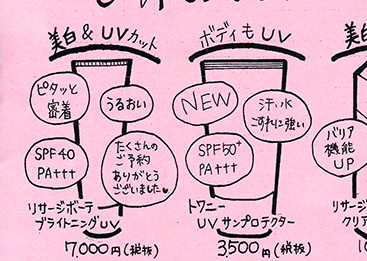 美白&UVカット
ピタッと
密着
うるおい
SPF40
PA+++
たくさんの
ご予約
ありがとう
ございました♥
リサージボーテ
ブライトニングUV
7,000円(税抜)
ボディもUV
NEW
汗、水
こすれに強い
SPF50+
PA+++
トワニー
UVサンプロテクター
3,500円(税抜)
美白
バリア
機能
UP
リサージ
クリア